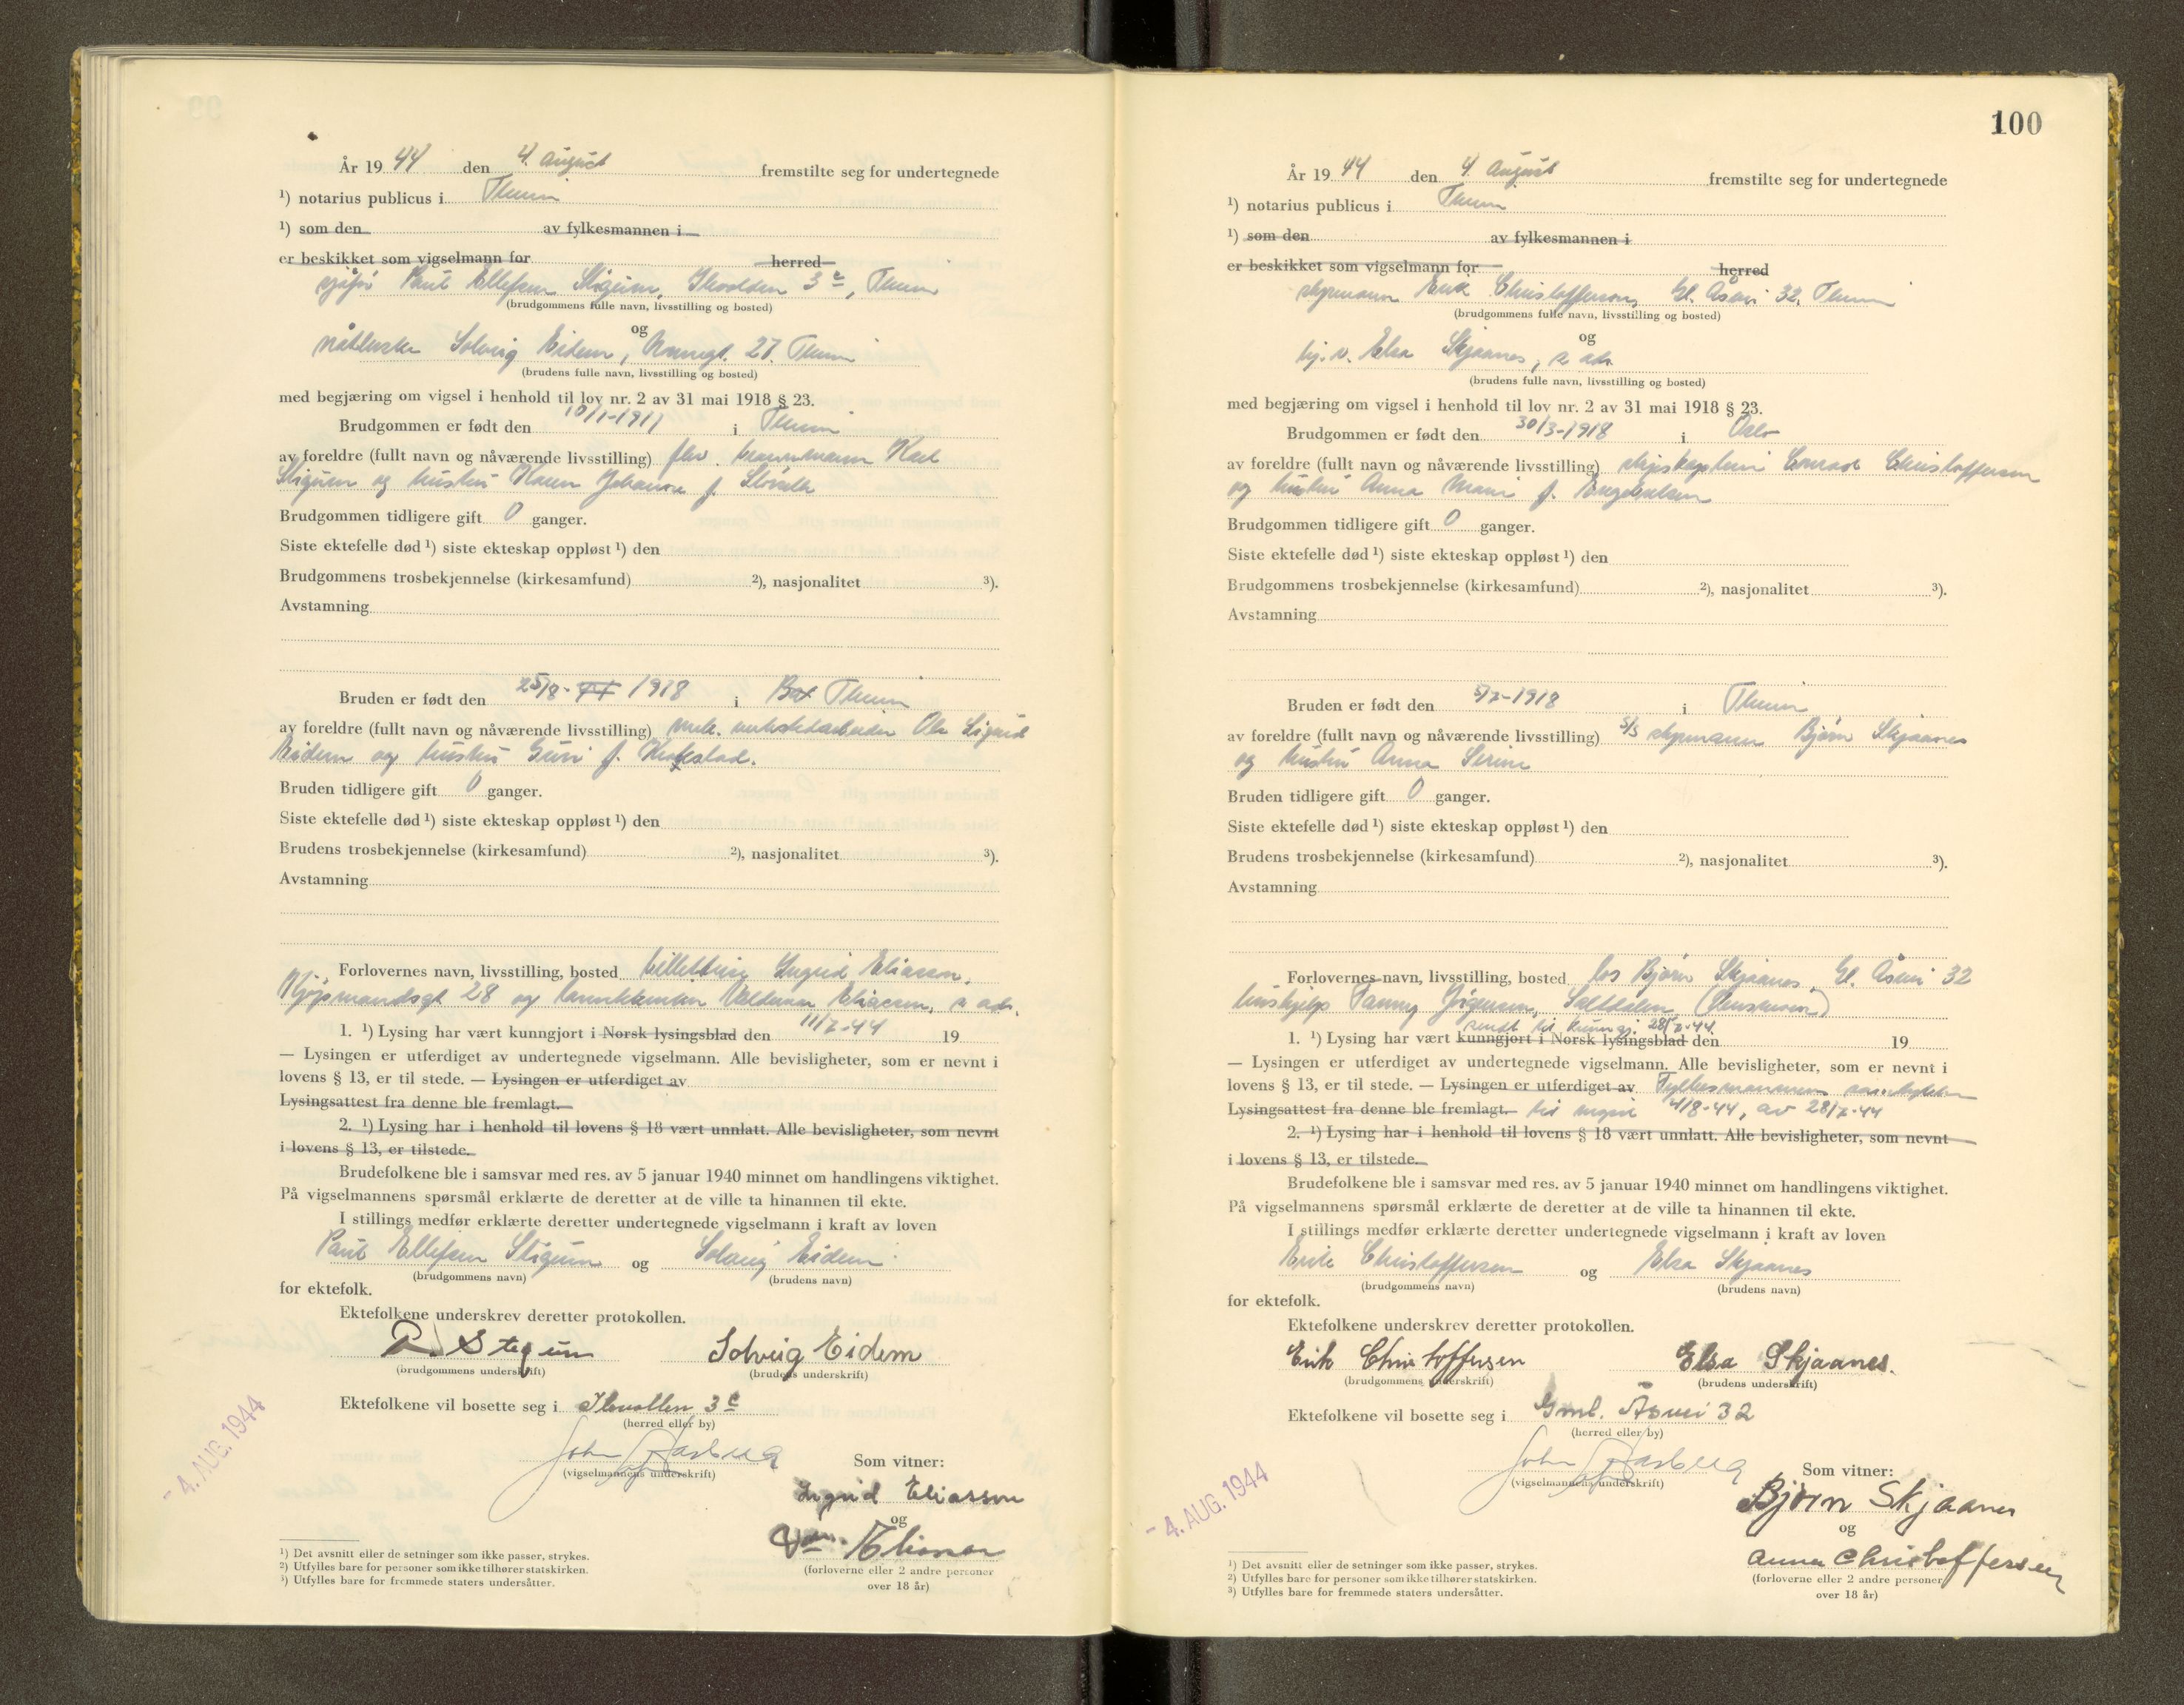 År 19 44 den 4. august fremstilte seg for undertegnede
¹) notarius publicus i Theim
¹) som den av fylkesmannen i
er beskikket som vigselmann for herred
sjåfør Paul Ellefsen Stigum, 3 c, Theim
(brudgommens fulle navn, livsstilling og bosted)
og
Solveig Eidem, 27. Theim
(brudens fulle navn, livsstilling og bosted)
med begjæring om vigsel i henhold til lov nr. 2 av 31 mai 1918 § 23.
Brudgommen er født den 10/1-1911 i Theim
av foreldre (fullt navn og nåværende livsstilling) fhv. Karl
Stigum og hustru Karen Johanna f.
Brudgommen tidligere gift 0 ganger.
Siste ektefelle død ¹) siste ekteskap oppløst ¹) den
Brudgommens trosbekjennelse (kirkesamfund) ²), nasjonalitet ³).
Avstamning
Bruden er født den 25/8- 1918 i Theim
av foreldre (fullt navn og nåværende livsstilling) mek. verkstedarbeider Ola Sigurd
Eidem og hustru Guri f.
Bruden tidligere gift 0 ganger.
Siste ektefelle død ¹) siste ekteskap oppløst ¹) den
Brudens trosbekjennelse (kirkesamfund) ²), nasjonalitet ³).
Avstamning
Forlovernes navn, livsstilling, bosted Ingrid Eliassen,
Kjøpmandsgt 28 og Eliassen, s. ads.
1. ¹) Lysing har vært kunngjort i Norsk lysingsblad den 11/7-44 19
— Lysingen er utferdiget av undertegnede vigselmann. Alle bevisligheter, som er nevnt i
lovens § 13, er til stede. — Lysingen er utferdiget av
Lysingsattest fra denne ble fremlagt.
2. ¹) Lysing har i henhold til lovens § 18 vært unnlatt. Alle bevisligheter, som nevnt
i lovens § 13, er tilstede.
Brudefolkene ble i samsvar med res. av 5 januar 1940 minnet om handlingens viktighet.
På vigselmannens spørsmål erklærte de deretter at de ville ta hinannen til ekte.
I stillings medfør erklærte deretter undertegnede vigselmann i kraft av loven
Paul Ellefsen Stigum og Solveig Eidem
(brudgommens navn) (brudens navn)
for ektefolk.
Ektefolkene underskrev deretter protokollen.
P. Stigum Solveig Eidem
(brudgommens underskrift) (brudens underskrift)
Ektefolkene vil bosette seg i 3 c
(herred eller by)
John Aarberg
(vigselmannens underskrift)
Som vitner:
Ingrid Eliassen
og
Eliassen
(forloverne eller 2 andre personer
over 18 år)
- 4. AUG. 1944
¹) Det avsnitt eller de setninger som ikke passer, strykes.
²) Utfylles bare for personer som ikke tilhører statskirken.
³) Utfylles bare for fremmede staters undersåtter.
100
År 19 44 den 4. august fremstilte seg for undertegnede
¹) notarius publicus i Theim
¹) som den av fylkesmannen i
er beskikket som vigselmann for herred
styrmann Erik Christoffersen, Gl. Åsvei 32, Theim
(brudgommens fulle navn, livsstilling og bosted)
og
Elsa Skjaanes, s. ads.
(brudens fulle navn, livsstilling og bosted)
med begjæring om vigsel i henhold til lov nr. 2 av 31 mai 1918 § 23.
Brudgommen er født den 30/3-1918 i Oslo
av foreldre (fullt navn og nåværende livsstilling) skipskaptein Conrad Christoffersen
og hustru Anna Marie f. Engebretsen
Brudgommen tidligere gift 0 ganger.
Siste ektefelle død ¹) siste ekteskap oppløst ¹) den
Brudgommens trosbekjennelse (kirkesamfund) ²), nasjonalitet ³).
Avstamning
Bruden er født den 5/7-1918 i Theim
av foreldre (fullt navn og nåværende livsstilling) styrmann Bjørn Skjaanes
og hustru Anna Serine
Bruden tidligere gift 0 ganger.
Siste ektefelle død ¹) siste ekteskap oppløst ¹) den
Brudens trosbekjennelse (kirkesamfund) ²), nasjonalitet ³).
Avstamning
Forlovernes navn, livsstilling, bosted Bjørn Skjaanes, Gl. Åsvei 32
hushjelp Fanny Jørgensen, Saltdalen
sendt til kunngj. 28/7-44
1. ¹) Lysing har vært kunngjort i Norsk lysingsblad den 19
— Lysingen er utferdiget av undertegnede vigselmann. Alle bevisligheter, som er nevnt i
lovens § 13, er til stede. — Lysingen er utferdiget av Fylkesmannens
Lysingsattest fra denne ble fremlagt. til 4/8-44, av 28/7-44
2. ¹) Lysing har i henhold til lovens § 18 vært unnlatt. Alle bevisligheter, som nevnt
i lovens § 13, er tilstede.
Brudefolkene ble i samsvar med res. av 5 januar 1940 minnet om handlingens viktighet.
På vigselmannens spørsmål erklærte de deretter at de ville ta hinannen til ekte.
I stillings medfør erklærte deretter undertegnede vigselmann i kraft av loven
Erik Christoffersen og Elsa Skjaanes
(brudgommens navn) (brudens navn)
for ektefolk.
Ektefolkene underskrev deretter protokollen.
Erik Christoffersen Elsa Skjaanes.
(brudgommens underskrift) (brudens underskrift)
Ektefolkene vil bosette seg i Gml. Åsvei 32
(herred eller by)
John Aarberg
(vigselmannens underskrift)
Som vitner:
Bjørn Skjaanes
og
Anna Christoffersen
(forloverne eller 2 andre personer
over 18 år)
- 4. AUG. 1944
¹) Det avsnitt eller de setninger som ikke passer, strykes.
²) Utfylles bare for personer som ikke tilhører statskirken.
³) Utfylles bare for fremmede staters undersåtter.